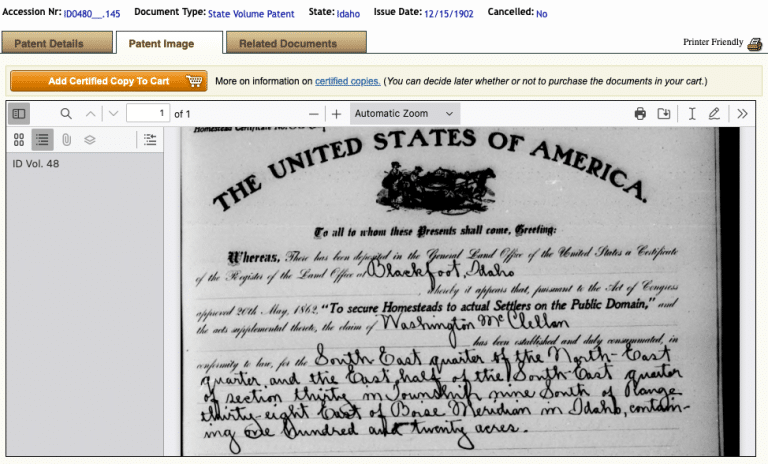 Accession Nr: ID0480__.145 Document Type: State Volume Patent State: Idaho Issue Date: 12/15/1902 Cancelled: No
Patent Details Patent Image Related Documents Printer Friendly
Add Certified Copy To Cart More on information on certified copies. (You can decide later whether or not to purchase the documents in your cart.)
1 of 1 Automatic Zoom
ID Vol. 48
Homestead Certificate No.
THE UNITED STATES OF AMERICA.
To all to whom these Presents shall come, Greeting:
Whereas, There has been deposited in the General Land Office of the United States a Certificate
of the Register of the Land Office at Blackfoot, Idaho
, whereby it appears that, pursuant to the Act of Congress
approved 20th May, 1862, "To secure Homesteads to actual Settlers on the Public Domain," and
the acts supplemental thereto, the claim of Washington McClellan
has been established and duly consummated, in
conformity to law, for the South East quarter of the North-East
quarter, and the East half of the South-East quarter
of section thirty in Township nine South of Range
thirty-eight East of Boise Meridian in Idaho, contain-
ing one hundred and twenty acres.